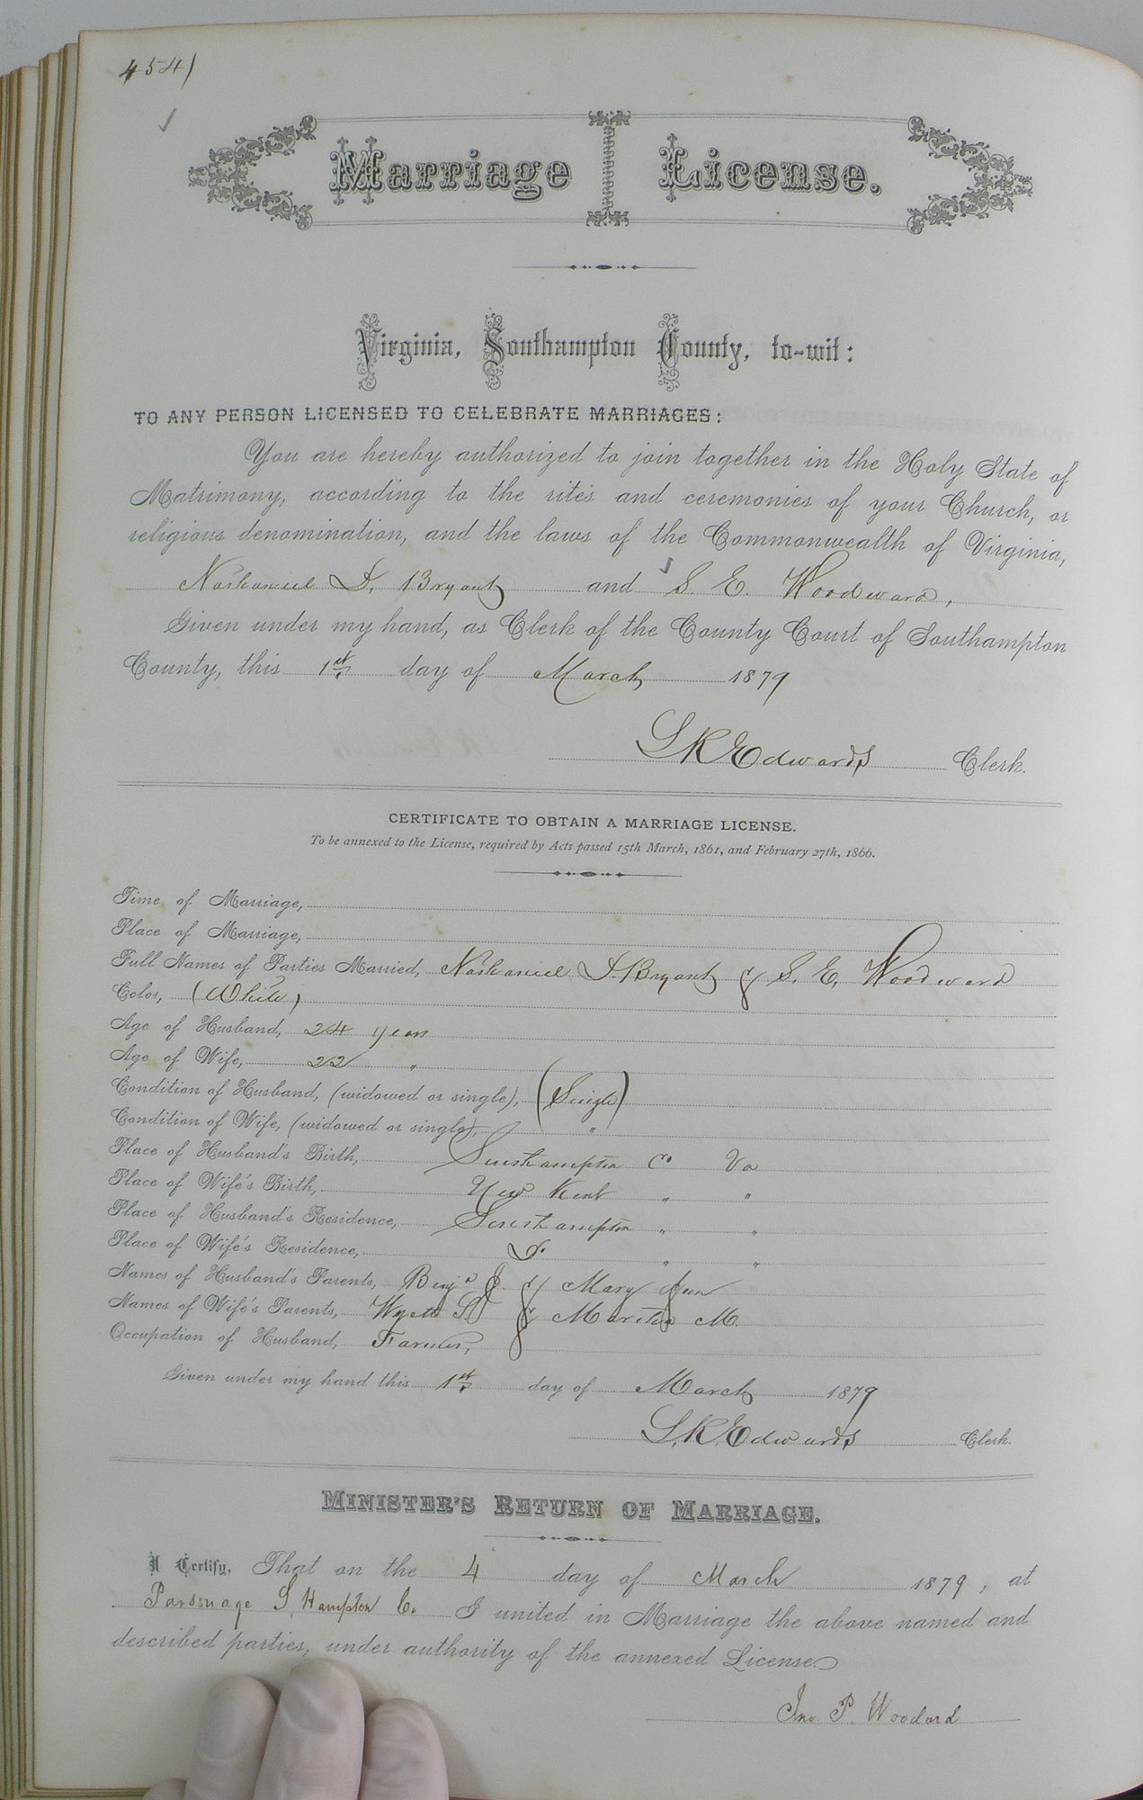 454)
Marriage License.
Virginia, Southampton County, to-wit:
TO ANY PERSON LICENSED TO CELEBRATE MARRIAGES:
You are hereby authorized to join together in the Holy State of
Matrimony, according to the rites and ceremonies of your Church, or
religious denomination, and the laws of the Commonwealth of Virginia,
Nathaniel J. Bryant and S. E. Woodward,
Given under my hand, as Clerk of the County Court of Southampton
County, this 1st day of March 1879
L.R. Edwards Clerk.
CERTIFICATE TO OBTAIN A MARRIAGE LICENSE.
To be annexed to the License, required by Acts passed 15th March, 1861, and February 27th, 1866.
Time of Marriage,
Place of Marriage,
Full Names of Parties Married, Nathaniel J. Bryant & S. E. Woodward
Color, (White)
Age of Husband, 24 years
Age of Wife, 22 "
Condition of Husband, (widowed or single), (Single)
Condition of Wife, (widowed or single), "
Place of Husband's Birth, Southampton Co Va
Place of Wife's Birth, New Kent " "
Place of Husband's Residence, Southampton " "
Place of Wife's Residence, Do " "
Names of Husband's Parents, Benja J. & Mary Ann
Names of Wife's Parents, & M.
Occupation of Husband, Farmer,
Given under my hand this 1st day of March 1879
L.R. Edwards Clerk.
MINISTER'S RETURN OF MARRIAGE.
I Certify, That on the 4 day of March 1879, at
Parsonage S Hampton Co. I united in Marriage the above named and
described parties, under authority of the annexed License.
Jno P. Woodard